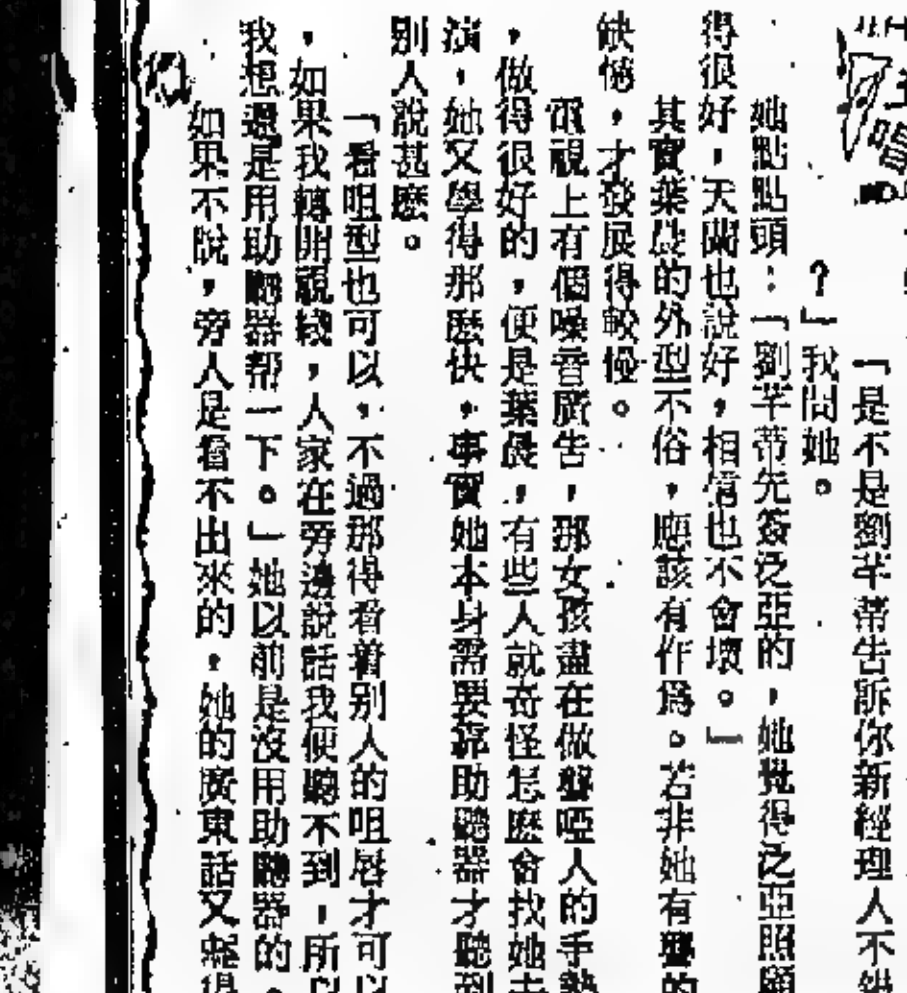 「是不是劉芊蒂告訴你新經理人不錯
？」我問她。
她點點頭：「劉芊蒂先簽泛亞的，她覺得泛亞照顧
得很好，天蘭也說好，相信也不會壞。」
其實葉晨的外型不俗，應該有作爲。若非她有聾的
缺憾，才發展得較慢。
電視上有個噪音廣告，那女孩盡在做聾啞人的手勢
，做得很好的，便是葉晨，有些人就奇怪怎麽會找她去
演，她又學得那麽快，事實她本身需要靠助聽器才聽到
別人說甚麽。
「看咀型也可以，不過那得看着别人的咀唇才可以
，如果我轉開視綫，人家在旁邊說話我便聽不到，所以
我想還是用助聽器帮一下。」她以前是沒用助聽器的。
如果不說，旁人是看不出來的，她的廣東話又 得